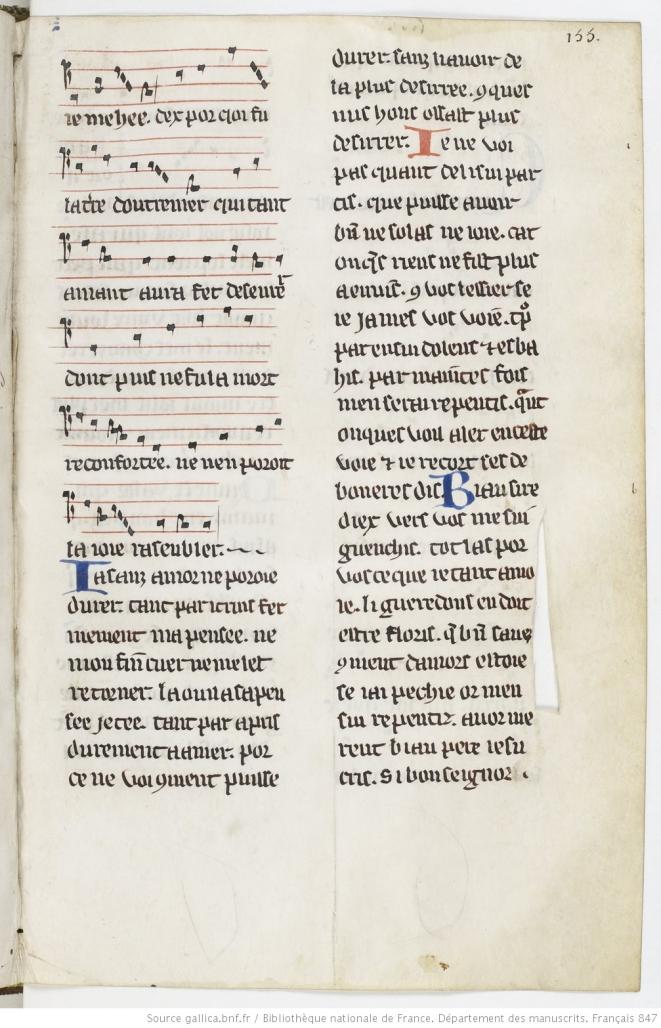 155.
ie me hee. dex por qoi fu
la t're doutremer qui tant
amant aura fet deseure'
dont puis ne fu la mort
reconfortee. ne nen poroit
la ioie rasenbler.
Ia sanz amor ne poroie
durer. tant par i truis fer
mement ma pensee. ne
mon fin cuer ne me let
retorner. la ou il a sa pen
see jetee. tant par apris
durement a amer. por
ce ne voi 9ment puisse
durer. sanz li avoir de
la plus desirree. 9ques
nus hons ossast plus
desirrer. Ie ne voi
pas quant de li sui par
tis. que puisse avoir
bn̄ ne solas ne ioie. car
onqs riens ne fist plus
a envis. 9 vos lessier se
ie james vos voie. tp̄
par en sui dolens ⁊ esba
his. par maintes fois
men serai repentis. qāt
onques voil aler en ceste
voie ⁊ ie recort ses de
boneres dis Biau sire
diex vers vos me sui
guenchis. tot las por
vos ce que ie tant amo
ie. li gueredons en doit
estre floris. q̄ bn̄ save
9ment damors estoie
se iai pechie or men
sui repentir. avor me
rent biau pere iesu
cris. Si bon seignor.
Source gallica.bnf.fr / Bibliothèque nationale de France. Département des manuscrits. Français 847